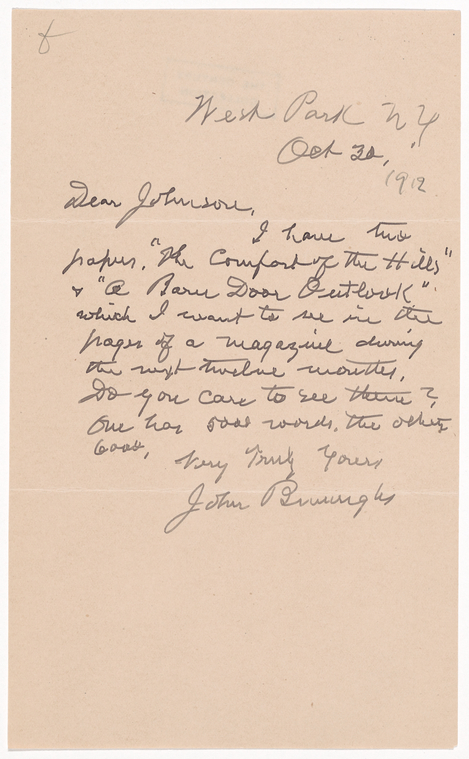 West Park N Y
Oct 30, "
1912
Dear Johnson,
I have two
papers, "The Comfort of the Hills"
& "A Barn Door Outlook"
which I want to see in the
pages of a magazine during
the next twelve months.
Do you care to see them?
One has 5000 words, the other
6000,
Very Truly Yours
John Burroughs